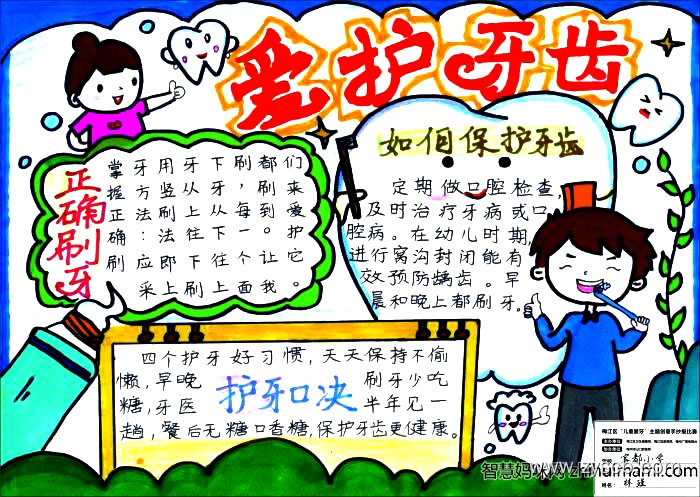 爱护牙齿
正确刷牙
掌握正确刷
牙方法：应采
用竖刷法即上
牙从上往下刷
下牙从下往上
刷，每一个面
都刷到。让我
们来爱护它。
如何保护牙齿
定期做口腔检查,
及时治疗牙病或口
腔病。在幼儿时期,
进行窝沟封闭能有
效预防龋齿。早
晨和晚上都刷牙。
四个护牙好习惯,天天保持不偷
懒,早晚 刷牙少吃
护牙口决
糖,牙医 半年见一
趟,餐后无糖口香糖,保护牙齿更健康。
学校: 客都小学
姓名: 林
智慧妈咪